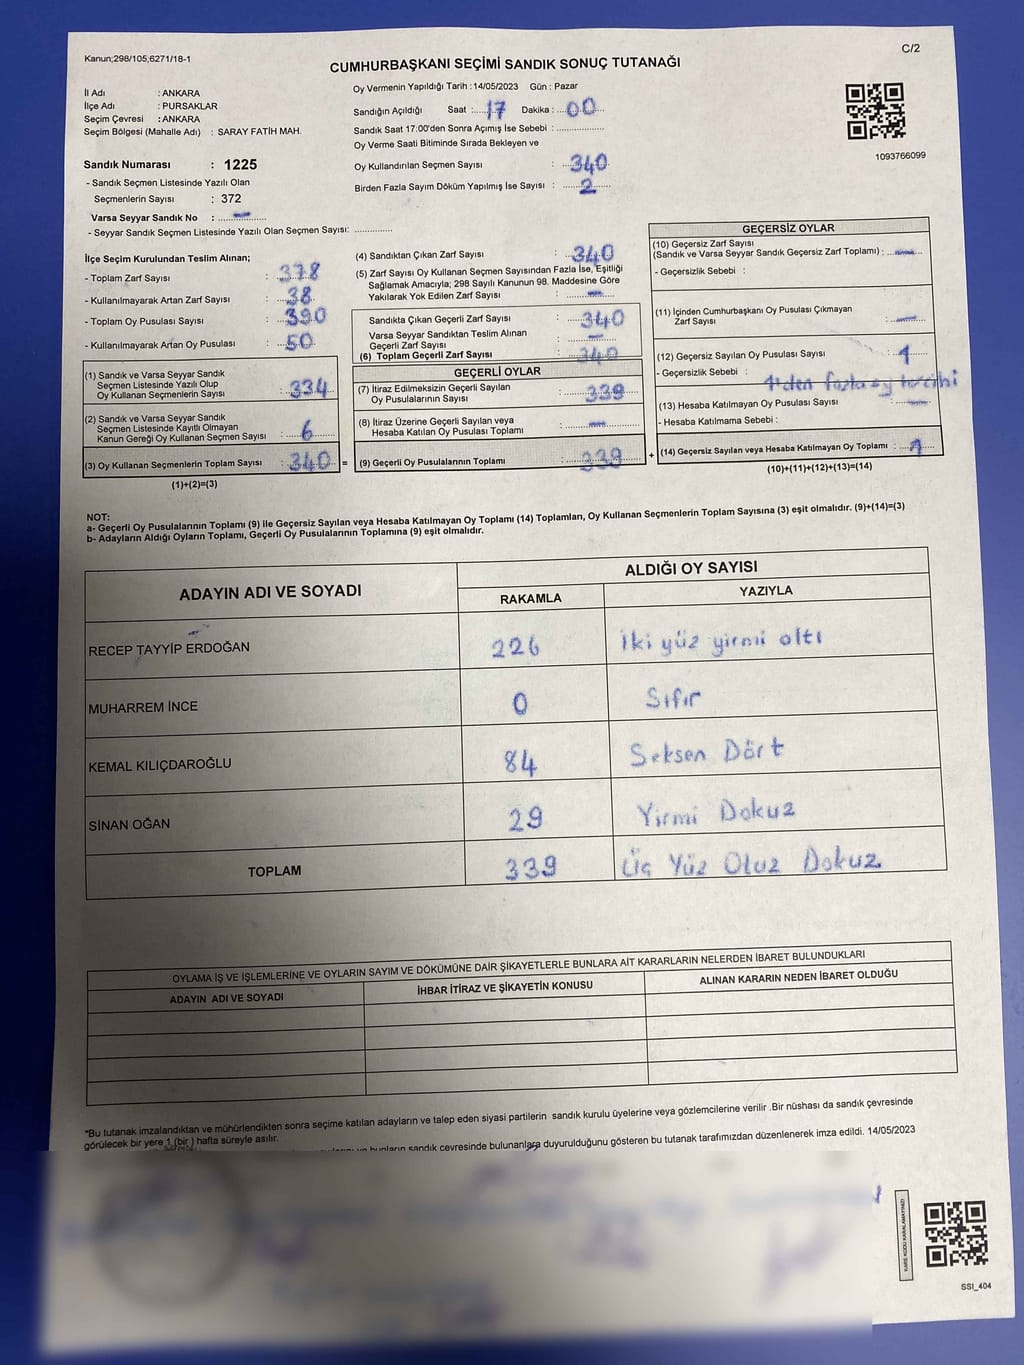 Kanun;298/105,6271/18-1
C/2
CUMHURBAŞKANI SEÇİMİ SANDIK SONUÇ TUTANAĞI
İl Adı : ANKARA
İlçe Adı : PURSAKLAR
Seçim Çevresi : ANKARA
Seçim Bölgesi (Mahalle Adı) : SARAY FATİH MAH.
Sandık Numarası : 1225
- Sandık Seçmen Listesinde Yazılı Olan
Seçmenlerin Sayısı : 372
Varsa Seyyar Sandık No : –
- Seyyar Sandık Seçmen Listesinde Yazılı Olan Seçmen Sayısı: ..............
Oy Vermenin Yapıldığı Tarih : 14/05/2023 Gün : Pazar
Sandığın Açıldığı Saat : 17 Dakika : 00
Sandık Saat 17:00'den Sonra Açımış İse Sebebi : ..................
Oy Verme Saati Bitiminde Sırada Bekleyen ve
Oy Kullandırılan Seçmen Sayısı : 340
Birden Fazla Sayım Döküm Yapılmış İse Sayısı : 2
1093766099
İlçe Seçim Kurulundan Teslim Alınan;
- Toplam Zarf Sayısı : 378
- Kullanılmayarak Artan Zarf Sayısı : 38
- Toplam Oy Pusulası Sayısı : 390
- Kullanılmayarak Artan Oy Pusulası : 50
(1) Sandık ve Varsa Seyyar Sandık
Seçmen Listesinde Yazılı Olup
Oy Kullanan Seçmenlerin Sayısı : 334
(2) Sandık ve Varsa Seyyar Sandık
Seçmen Listesinde Kayıtlı Olmayan
Kanun Gereği Oy Kullanan Seçmen Sayısı : 6
(3) Oy Kullanan Seçmenlerin Toplam Sayısı : 340 =
(1)+(2)=(3)
(4) Sandıktan Çıkan Zarf Sayısı : 340
(5) Zarf Sayısı Oy Kullanan Seçmen Sayısından Fazla İse, Eşitliği
Sağlamak Amacıyla; 298 Sayılı Kanunun 98. Maddesine Göre
Yakılarak Yok Edilen Zarf Sayısı : –
Sandıkta Çıkan Geçerli Zarf Sayısı : 340
Varsa Seyyar Sandıktan Teslim Alınan
Geçerli Zarf Sayısı : –
(6) Toplam Geçerli Zarf Sayısı : 340
GEÇERLİ OYLAR
(7) İtiraz Edilmeksizin Geçerli Sayılan
Oy Pusulalarının Sayısı : 339
(8) İtiraz Üzerine Geçerli Sayılan veya
Hesaba Katılan Oy Pusulası Toplamı : –
(9) Geçerli Oy Pusulalarının Toplamı : 339 +
GEÇERSİZ OYLAR
(10) Geçersiz Zarf Sayısı
(Sandık ve Varsa Seyyar Sandık Geçersiz Zarf Toplamı) : –
- Geçersizlik Sebebi :
(11) İçinden Cumhurbaşkanı Oy Pusulası Çıkmayan
Zarf Sayısı : –
(12) Geçersiz Sayılan Oy Pusulası Sayısı : 1
- Geçersizlik Sebebi : 1'den fazla oy tercihi
(13) Hesaba Katılmayan Oy Pusulası Sayısı : –
- Hesaba Katılmama Sebebi :
(14) Geçersiz Sayılan veya Hesaba Katılmayan Oy Toplamı : 1
(10)+(11)+(12)+(13)=(14)
NOT:
a- Geçerli Oy Pusulalarının Toplamı (9) ile Geçersiz Sayılan veya Hesaba Katılmayan Oy Toplamı (14) Toplamları, Oy Kullanan Seçmenlerin Toplam Sayısına (3) eşit olmalıdır. (9)+(14)=(3)
b- Adayların Aldığı Oyların Toplamı, Geçerli Oy Pusulalarının Toplamına (9) eşit olmalıdır.
ADAYIN ADI VE SOYADI
ALDIĞI OY SAYISI
RAKAMLA YAZIYLA
RECEP TAYYİP ERDOĞAN 226 İki yüz yirmi altı
MUHARREM İNCE 0 Sıfır
KEMAL KILIÇDAROĞLU 84 Seksen Dört
SİNAN OĞAN 29 Yirmi Dokuz
TOPLAM 339 Üç Yüz Otuz Dokuz
OYLAMA İŞ VE İŞLEMLERİNE VE OYLARIN SAYIM VE DÖKÜMÜNE DAİR ŞİKAYETLERLE BUNLARA AİT KARARLARIN NELERDEN İBARET BULUNDUKLARI
ADAYIN ADI VE SOYADI
İHBAR İTİRAZ VE ŞİKAYETİN KONUSU
ALINAN KARARIN NEDEN İBARET OLDUĞU
*Bu tutanak imzalandıktan ve mühürlendikten sonra seçime katılan adayların ve talep eden siyasi partilerin sandık kurulu üyelerine veya gözlemcilerine verilir .Bir nüshası da sandık çevresinde
görülecek bir yere 1 (bir ) hafta süreyle asılır.
bunların sandık çevresinde bulunanlara duyurulduğunu gösteren bu tutanak tarafımızdan düzenlenerek imza edildi. 14/05/2023
KARE KODU KARALAMAYINIZ!
SSI_404